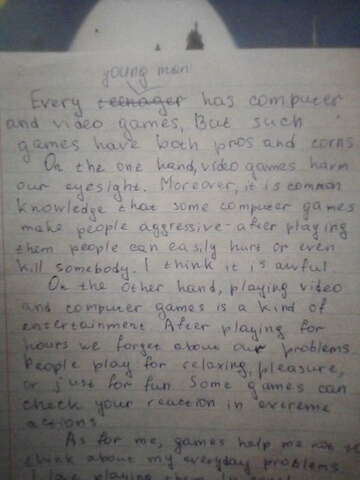 young man
Every teenager has computer
and video games, But such
games have both pros and corns
On the one hand, video games harm
our eyesight. Moreover, it is common
knowledge that some computer games
make people aggressive-after playing
them people can easily hurt or even
kill somebody. I think it is awful
On the other hand, playing video
and computer games is a kind of
entertainment After playing for
hours we forget about our problems
People play for relaxing, pleasure,
or just for fun Some games can
check your reaction in extreme
actions.
As for me, games help me not
think about my everyday problems
I love playing them